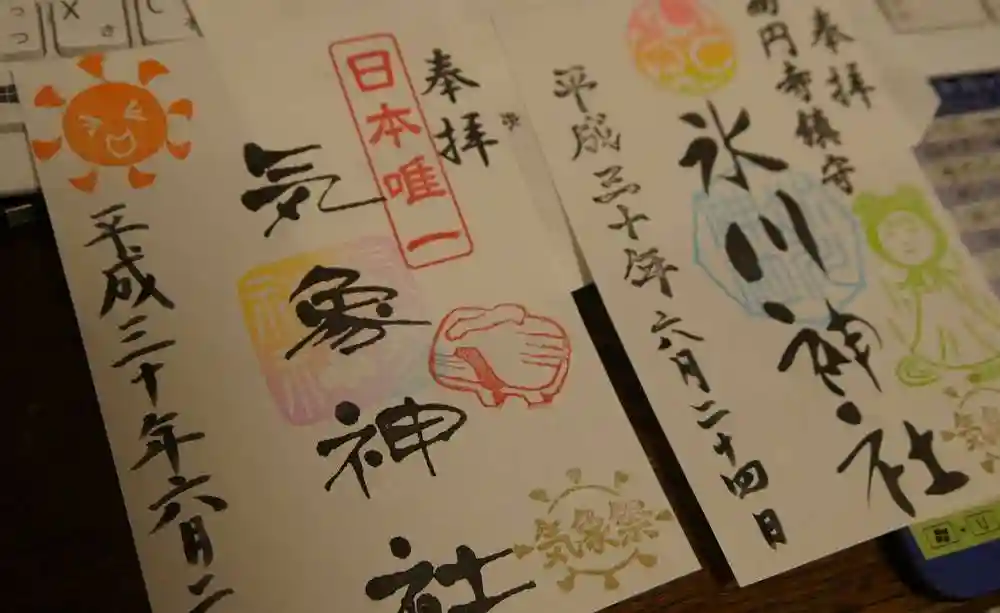 奉拝
日本唯一
気象神社
平成三十年六月二
気象祭
奉拝
高円寺鎮守
氷川神社
平成三十年六月二十四日
気象